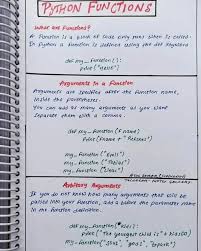 PYTHON FUNCTIONS
What are Functions?
A Function is a block of code only runs when is called.
In Python a function is defined using the def keyword
def my_function():
print("Hello")
Arguments in a Function
Arguments are specified after the function name,
inside the parentheses.
You can add as many arguments as you want
Separate them with a comma.
def my_function(fname)
print(fname + " Refsnes")
my_function("Emil")
my_function("Tobias")
my_function("Linus")
Arbitrary Arguments
If you do not know how many arguments that will be
passed into your function, add a before the parameter name
in the function definition.
def my_function(*kids):
print("The youngest child is" + kids[2])
my_function(